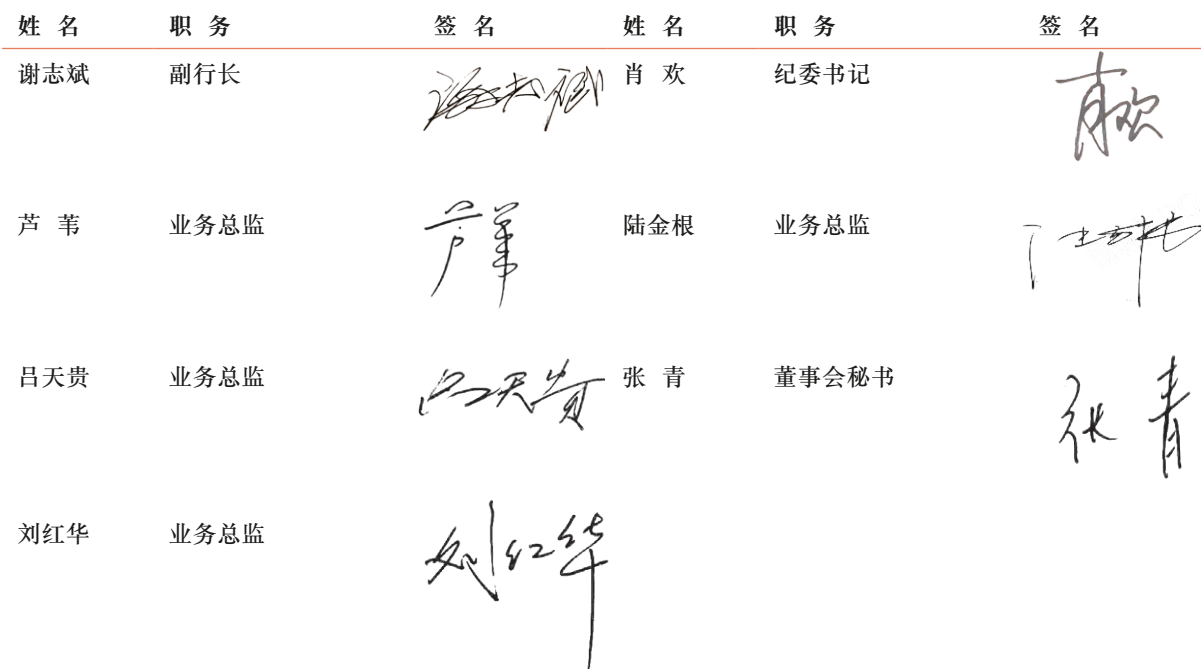 姓 名 职 务 签 名 姓 名 职 务 签 名
谢志斌 副行长 谢志斌 肖 欢 纪委书记 肖欢
芦 苇 业务总监 芦苇 陆金根 业务总监
吕天贵 业务总监 吕天贵 张 青 董事会秘书 张青
刘红华 业务总监 刘红华